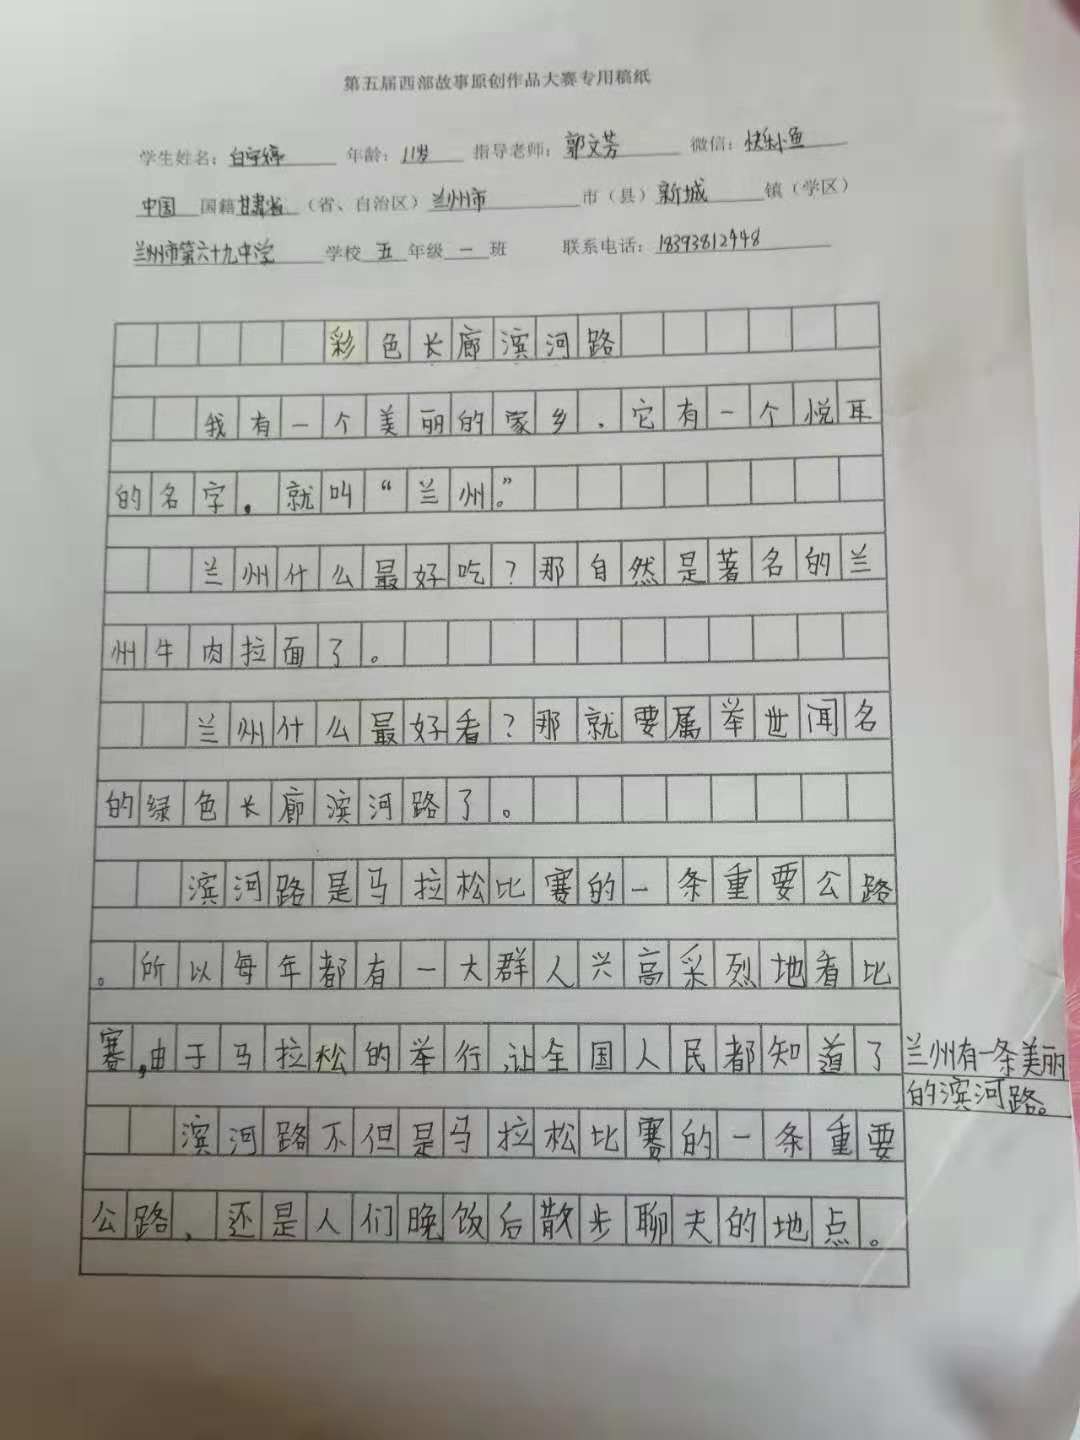 第五届西部故事原创作品大赛专用稿纸
学生姓名：白宇婷 年龄：11岁 指导老师：郭文芳 微信：快乐小鱼
中国 国籍 甘肃省（省、自治区）兰州市 市（县）新城 镇（学区）
兰州市第六十九中学 学校 五 年级 一 班 联系电话：18393812448
彩色长廊滨河路
我有一个美丽的家乡，它有一个悦耳
的名字，就叫“兰州”。
兰州什么最好吃？那自然是著名的兰
州牛肉拉面了。
兰州什么最好看？那就要属举世闻名
的绿色长廊滨河路了。
滨河路是马拉松比赛的一条重要公路
。所以每年都有一大群人兴高采烈地看比
赛，由于马拉松的举行，让全国人民都知道了兰州有一条美丽
的滨河路。
滨河路不但是马拉松比赛的一条重要
公路，还是人们晚饭后散步聊天的地点。